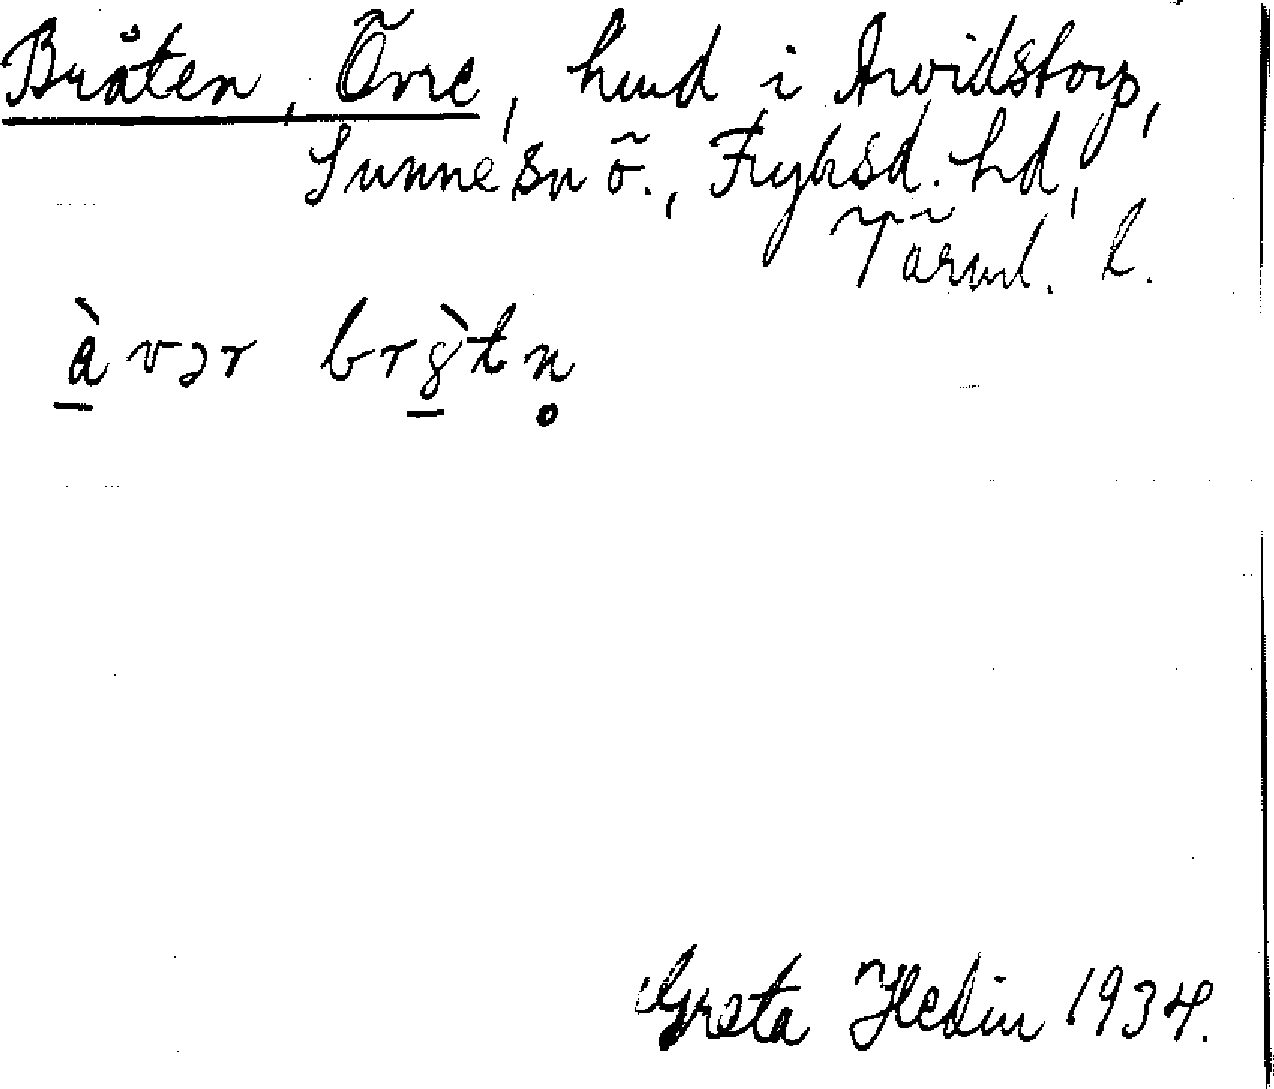 Bråten, Övre, hmd i Arvidstorp,
Sunne sn ö., Fryksd. hd,
Värml. l.
à vər brg̀tn̥
Greta Hedin 1934.